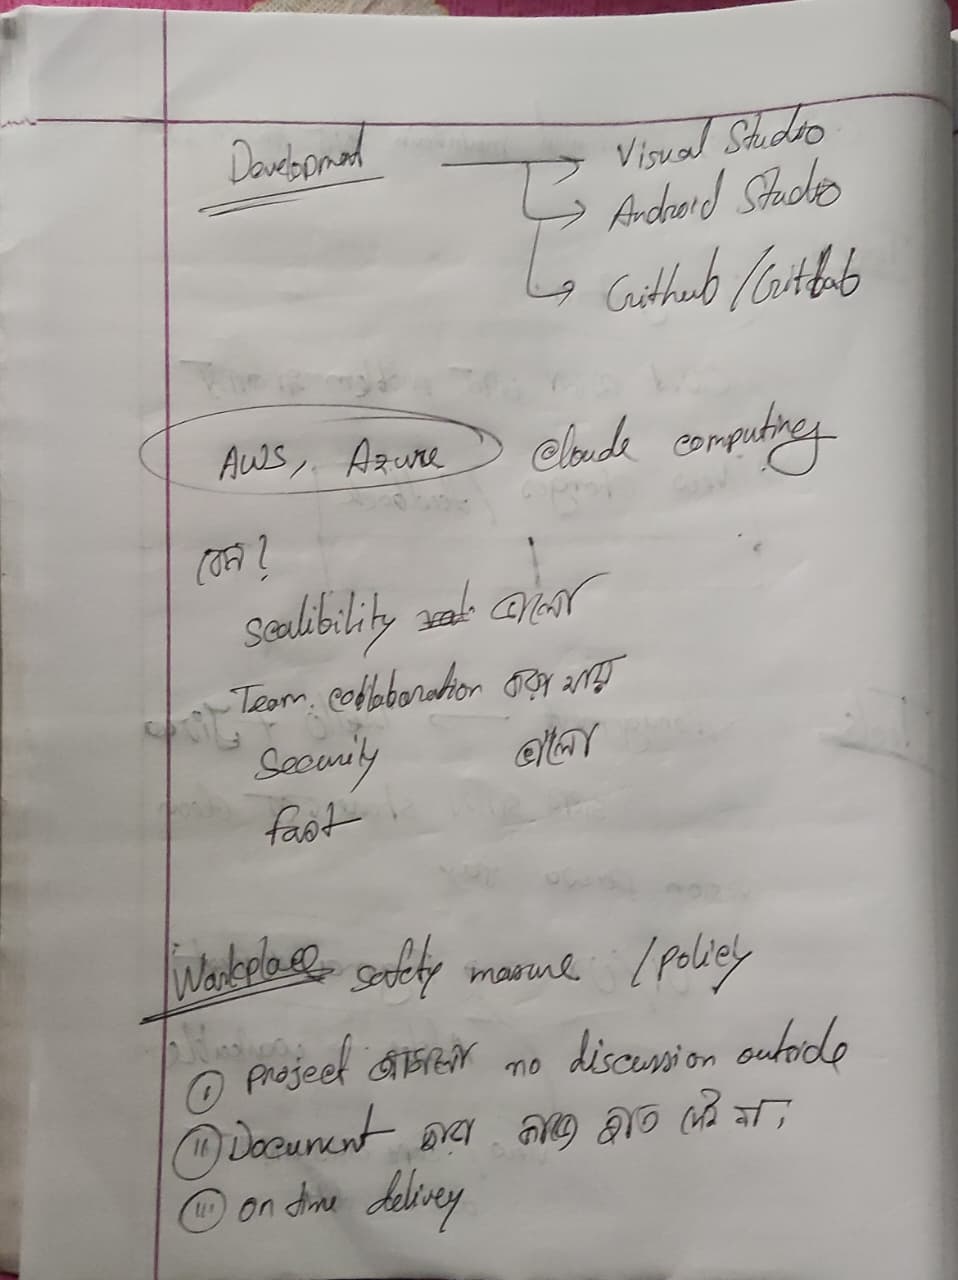 Development → Visual Studio
→ Android Studio
→ Github / GitLab
AWS, Azure Cloude computing
কেন?
Scalibility ভালো
Team collaboration করা যায়
Security ভালো
fast
Workplace safety measure / policy
① Project no discussion outside
② Document কারো কাছে হাত দেই না,
③ on time delivey